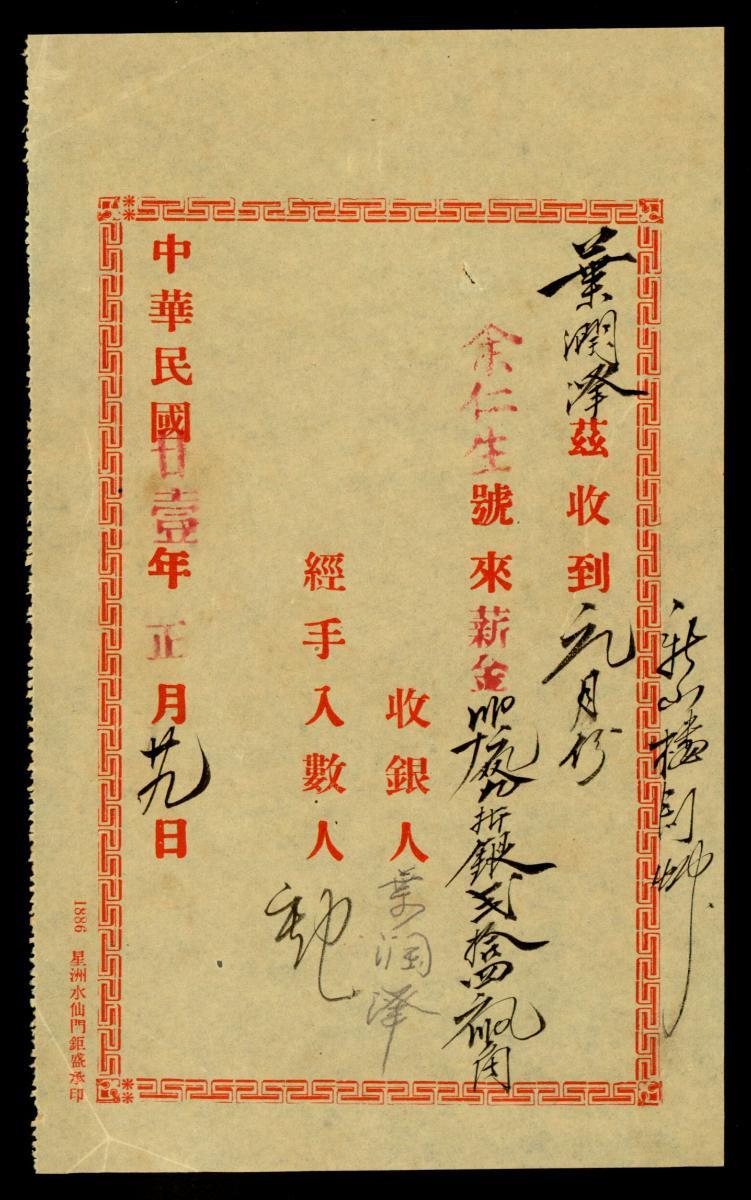 葉潤澤茲收到元月份
余仁生號來薪金
折銀弍拾四
收銀人葉潤澤
經手入數人
中華民國廿壹年正月廿九日
1886 星洲水仙門鉅盛承印